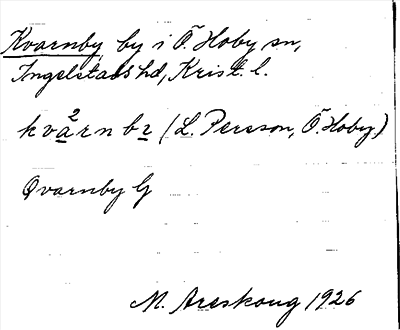 Kvarnby by i Ö. Hoby sn,
Ingelstads hd, Krist. l.
kva²rnbɪ (L. Persson, Ö. Hoby)
Qvarnby G
M. Areskoug 1926